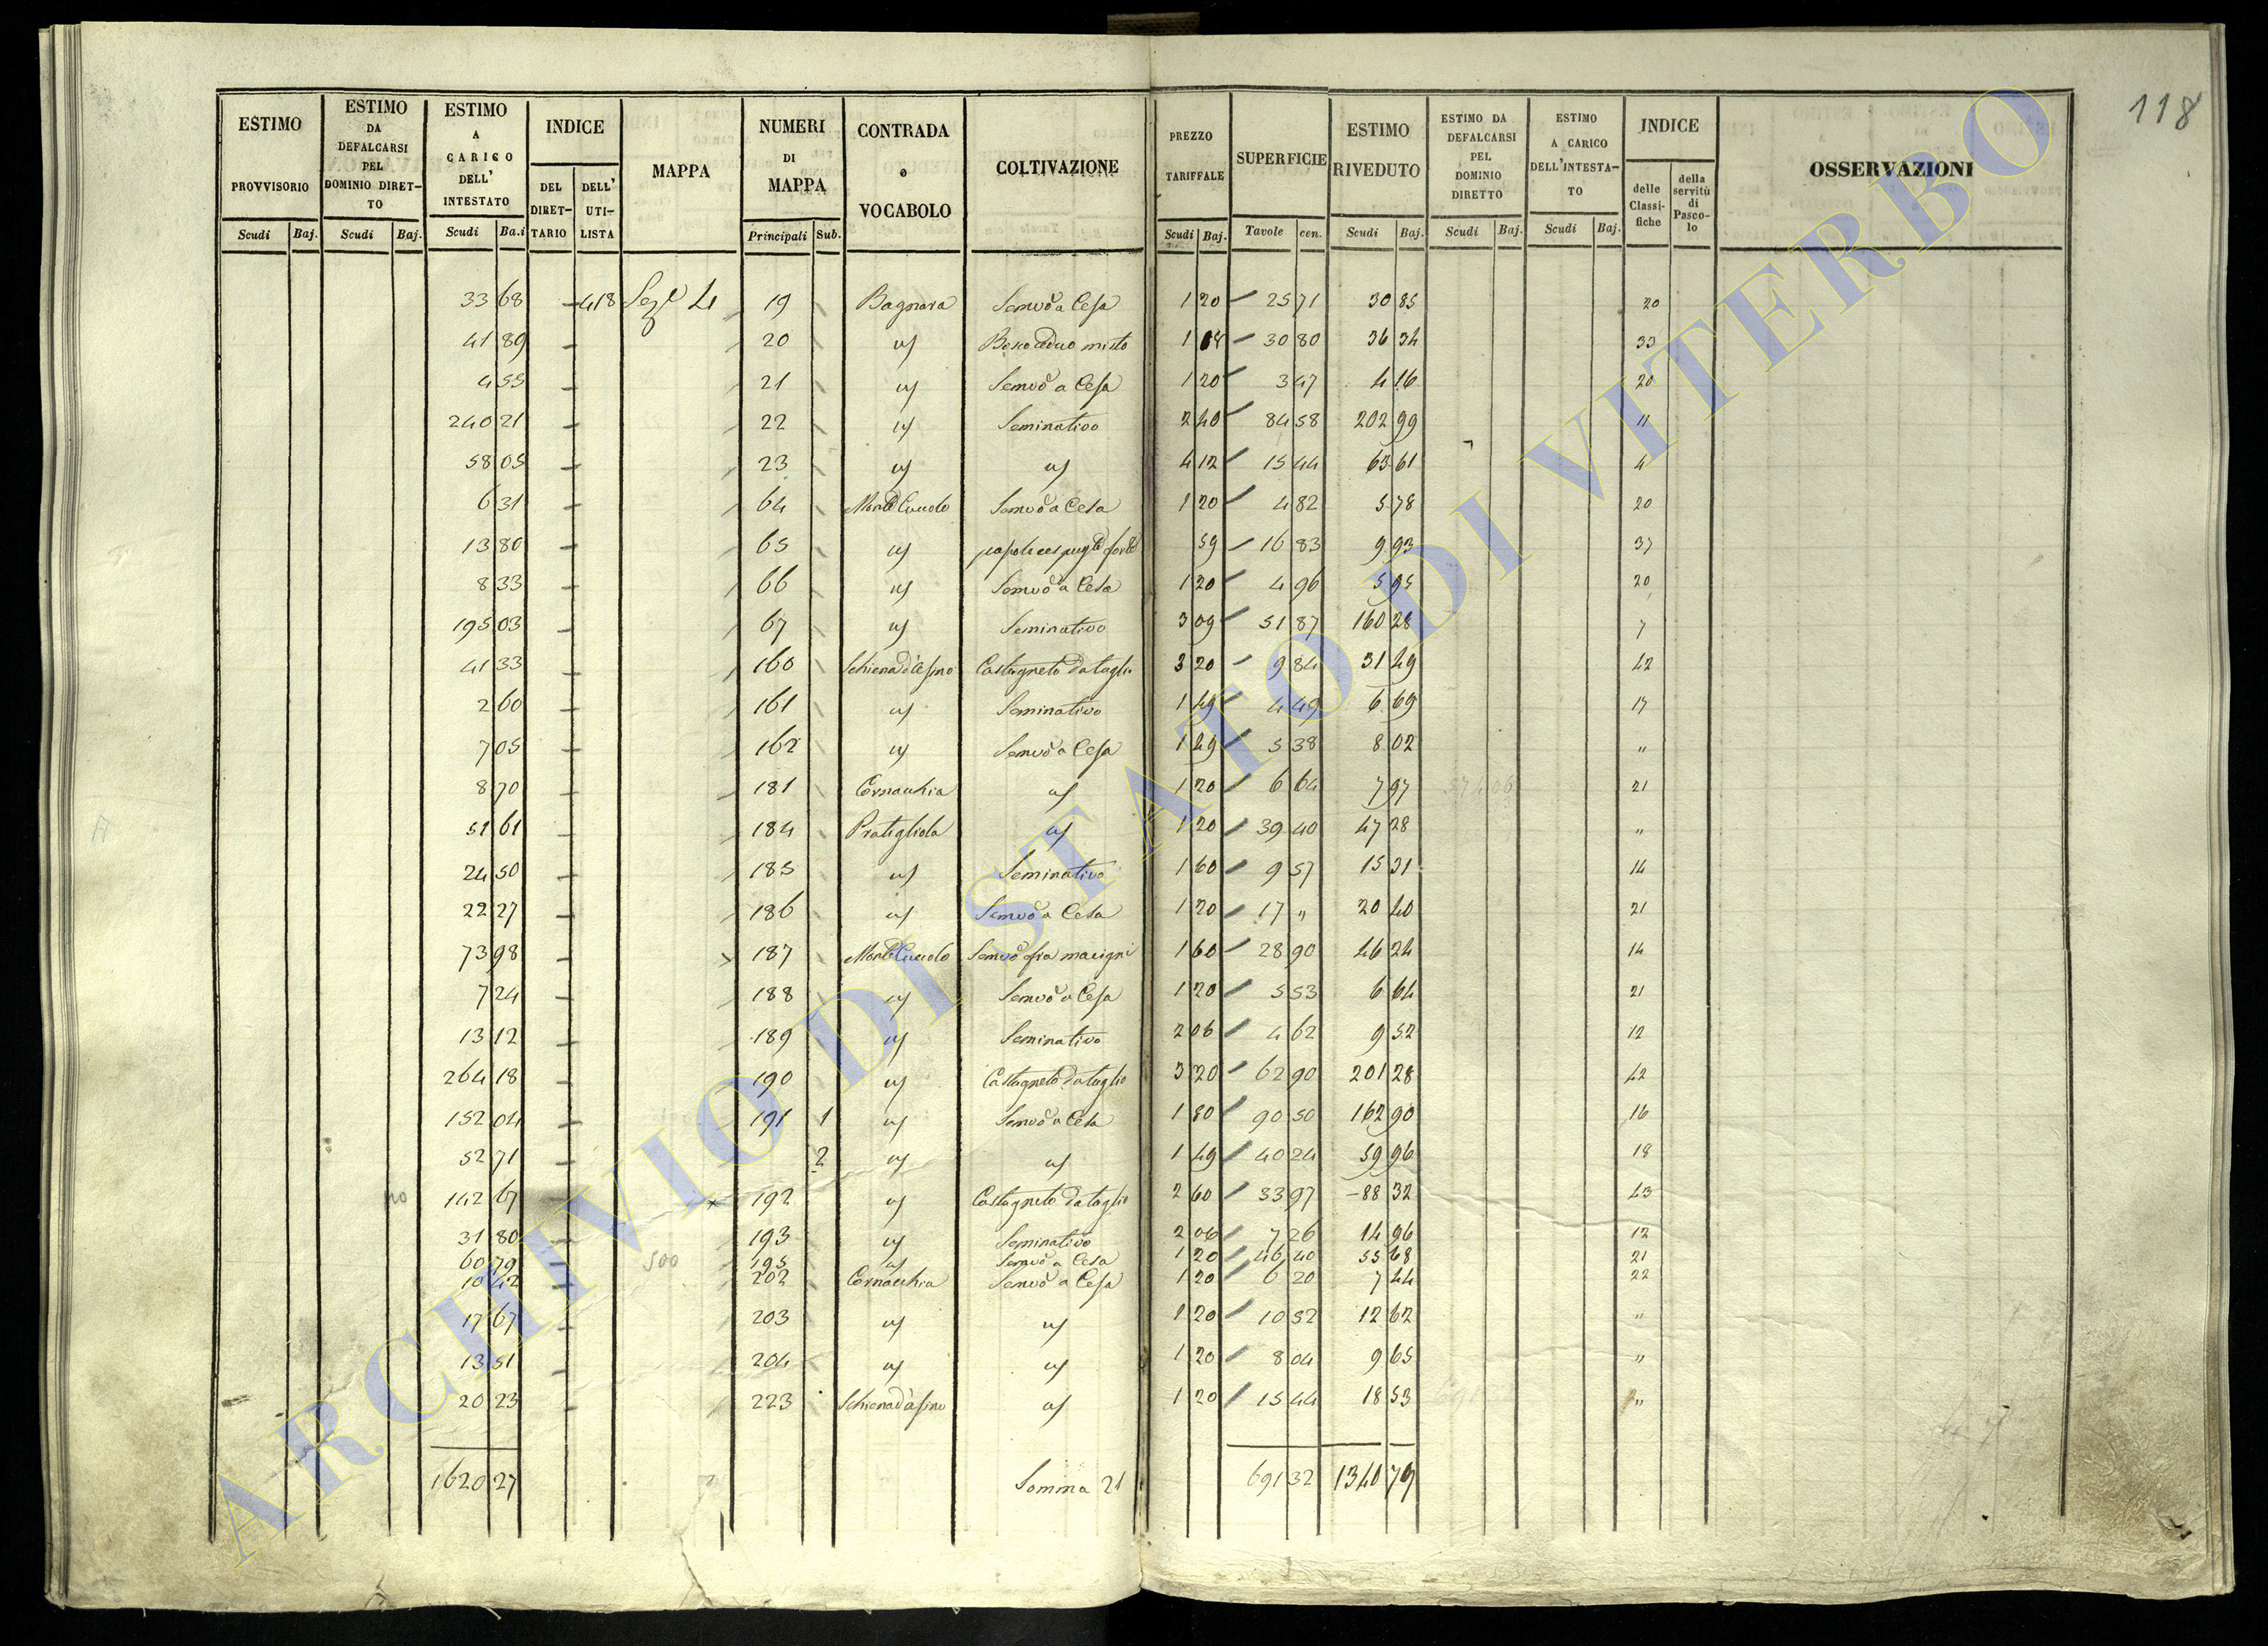 118
ESTIMO PROVVISORIO | ESTIMO DA DEFALCARSI PEL DOMINIO DIRET-TO | ESTIMO A CARICO DELL' INTESTATO | INDICE | MAPPA | NUMERI DI MAPPA | CONTRADA o VOCABOLO | COLTIVAZIONE | PREZZO TARIFFALE | SUPERFICIE | ESTIMO RIVEDUTO | ESTIMO DA DEFALCARSI PEL DOMINIO DIRETTO | ESTIMO A CARICO DELL'INTESTA-TO | INDICE | OSSERVAZIONI
DEL DIRET-TARIO | DELL' UTI-LISTA | delle Classi-fiche | della servitù di Pasco-lo
Scudi | Baj. | Scudi | Baj. | Scudi | Ba.i | Principali | Sub. | Scudi | Baj. | Tavole | cen. | Scudi | Baj. | Scudi | Baj. | Scudi | Baj.
33 68 | 418 | Sez.e 4 | 19 | Bagnara | Semvo a Cesa | 1 20 | 25 71 | 30 85 | 20
41 89 | 20 | us | Bosco ceduo misto | 1 18 | 30 80 | 36 34 | 33
4 55 | 21 | us | Semvo a Cesa | 1 20 | 3 47 | 4 16 | 20
240 21 | 22 | us | Seminativo | 2 40 | 84 58 | 202 99 | 11
58 05 | 23 | us | us | 4 12 | 15 44 | 63 61 | 4
6 31 | 64 | Monte Cuccolo | Semvo a Cesa | 1 20 | 4 82 | 5 78 | 20
13 80 | 65 | us | 59 | 16 83 | 9 93 | 37
8 33 | 66 | us | Semvo a Cesa | 1 20 | 4 96 | 5 95 | 20
195 03 | 67 | us | Seminativo | 3 09 | 51 87 | 160 28 | 7
41 33 | 160 | Schiena d'Asino | Castagneto da taglio | 3 20 | 9 84 | 31 49 | 42
2 60 | 161 | us | Seminativo | 1 49 | 4 49 | 6 69 | 17
7 05 | 162 | us | Semvo a Cesa | 1 49 | 5 38 | 8 02 | "
8 70 | 181 | Cornacchia | us | 1 20 | 6 64 | 7 97 | 21
51 61 | 184 | Pratigliola | us | 1 20 | 39 40 | 47 28 | "
24 50 | 185 | us | Seminativo | 1 60 | 9 57 | 15 31 | 14
22 27 | 186 | us | Semvo a Cesa | 1 20 | 17 " | 20 40 | 21
73 98 | 187 | Monte Cuccolo | Semvo fra macigni | 1 60 | 28 90 | 46 24 | 14
7 24 | 188 | us | Semvo a Cesa | 1 20 | 5 53 | 6 64 | 21
13 12 | 189 | us | Seminativo | 2 06 | 4 62 | 9 52 | 12
264 18 | 190 | us | Castagneto da taglio | 3 20 | 62 90 | 201 28 | 42
152 04 | 191 | 1 | us | Semvo a Cesa | 1 80 | 90 50 | 162 90 | 16
52 71 | 2 | us | us | 1 49 | 40 24 | 59 96 | 18
142 67 | 192 | us | Castagneto da taglio | 2 60 | 33 97 | 88 32 | 43
31 80 | 193 | us | Seminativo | 2 06 | 7 26 | 14 96 | 12
60 79 | 500 | 195 | us | Semvo a Cesa | 1 20 | 46 40 | 55 68 | 21
10 42 | 202 | Cornacchia | Semvo a Cesa | 1 20 | 6 20 | 7 44 | 22
17 67 | 203 | us | us | 1 20 | 10 52 | 12 62 | "
13 51 | 204 | us | us | 1 20 | 8 04 | 9 65 | "
20 23 | 223 | Schiena d'asino | us | 1 20 | 15 44 | 18 53 | "
1620 27 | Somma 21 | 691 32 | 1340 79
ARCHIVIO DI STATO DI VITERBO